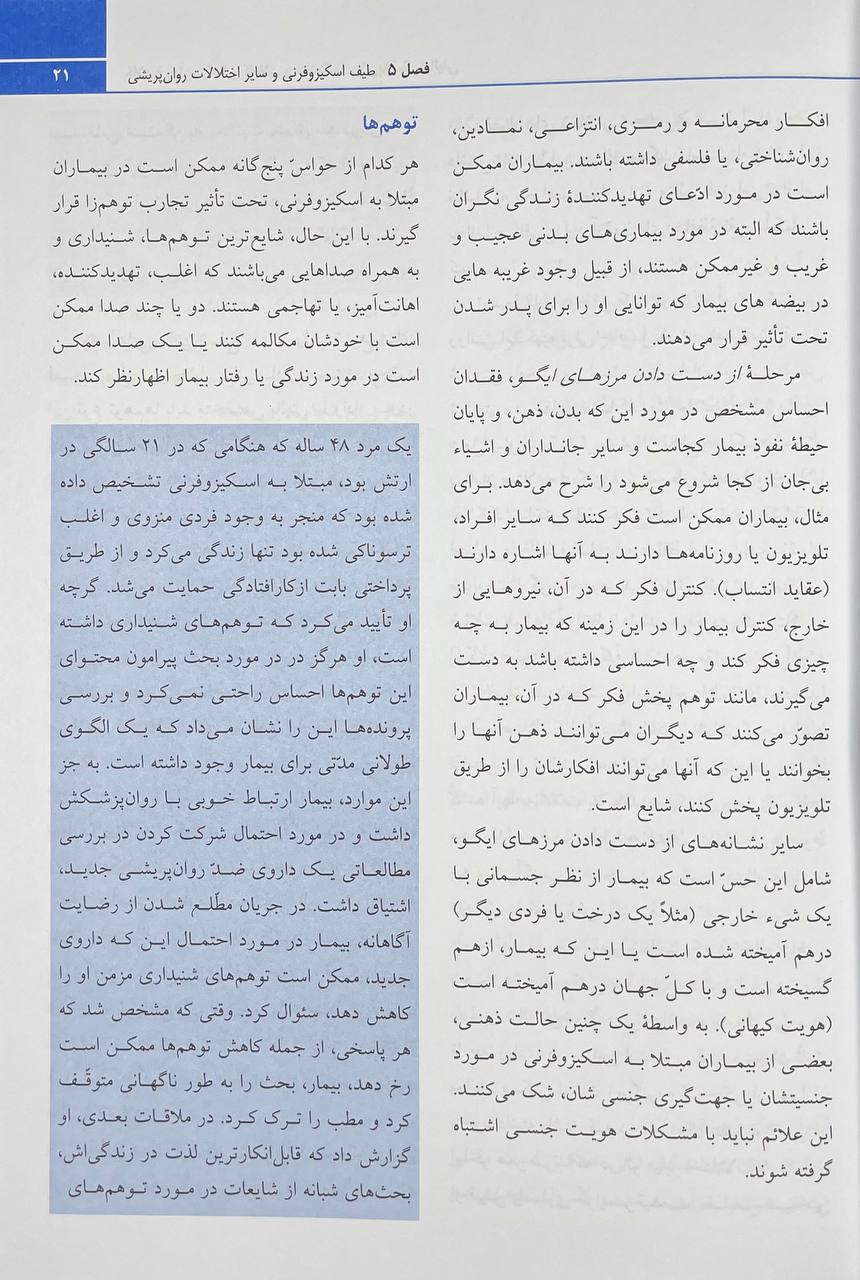 ۲۱
فصل ۵ طیف اسکیزوفرنی و سایر اختلالات روان‌پریشی
افکار محرمانه و رمزی، انتزاعی، نمادین،
روان‌شناختی، یا فلسفی داشته باشند. بیماران ممکن
است در مورد ادّعای تهدیدکنندهٔ زندگی نگران
باشند که البته در مورد بیماری‌های بدنی عجیب و
غریب و غیرممکن هستند، از قبیل وجود غریبه هایی
در بیضه های بیمار که توانایی او را برای پدر شدن
تحت تأثیر قرار می‌دهند.
مرحلهٔ از دست دادن مرزهای ایگو، فقدان
احساس مشخص در مورد این که بدن، ذهن، و پایان
حیطهٔ نفوذ بیمار کجاست و سایر جانداران و اشیاء
بی‌جان از کجا شروع می‌شود را شرح می‌دهد. برای
مثال، بیماران ممکن است فکر کنند که سایر افراد،
تلویزیون یا روزنامه‌ها دارند به آنها اشاره دارند
(عقاید انتساب). کنترل فکر که در آن، نیروهایی از
خارج، کنترل بیمار را در این زمینه که بیمار به چه
چیزی فکر کند و چه احساسی داشته باشد به دست
می‌گیرند، مانند توهم پخش فکر که در آن، بیماران
تصوّر می‌کنند که دیگران می‌توانند ذهن آنها را
بخوانند یا این که آنها می‌توانند افکارشان را از طریق
تلویزیون پخش کنند، شایع است.
سایر نشانه‌های از دست دادن مرزهای ایگو،
شامل این حسّ است که بیمار از نظر جسمانی با
یک شیء خارجی (مثلاً یک درخت یا فردی دیگر)
درهم آمیخته شده است یا این که بیمار، ازهم
گسیخته است و با کلّ جهان درهم آمیخته است
(هویت کیهانی). به واسطهٔ یک چنین حالت ذهنی،
بعضی از بیماران مبتلا به اسکیزوفرنی در مورد
جنسیتشان یا جهت‌گیری جنسی شان، شک می‌کنند.
این علائم نباید با مشکلات هویت جنسی اشتباه
گرفته شوند.
توهم‌ها
هر کدام از حواسّ پنج‌گانه ممکن است در بیماران
مبتلا به اسکیزوفرنی، تحت تأثیر تجارب توهم‌زا قرار
گیرند. با این حال، شایع‌ترین توهم‌ها، شنیداری و
به همراه صداهایی می‌باشند که اغلب، تهدیدکننده،
اهانت‌آمیز، یا تهاجمی هستند. دو یا چند صدا ممکن
است با خودشان مکالمه کنند یا یک صدا ممکن
است در مورد زندگی یا رفتار بیمار اظهارنظر کند.
یک مرد ۴۸ ساله که هنگامی که در ۲۱ سالگی در
ارتش بود، مبتلا به اسکیزوفرنی تشخیص داده
شده بود که منجر به وجود فردی منزوی و اغلب
ترسوناکی شده بود تنها زندگی می‌کرد و از طریق
پرداختی بابت ازکارافتادگی حمایت می‌شد. گرچه
او تأیید می‌کرد که توهم‌های شنیداری داشته
است، او هرگز در در مورد بحث پیرامون محتوای
این توهم‌ها احساس راحتی نمی‌کرد و بررسی
پرونده‌ها این را نشان می‌داد که یک الگوی
طولانی مدّتی برای بیمار وجود داشته است. به جز
این موارد، بیمار ارتباط خوبی با روان‌پزشکش
داشت و در مورد احتمال شرکت کردن در بررسی
مطالعاتی یک داروی ضدّ روان‌پریشی جدید،
اشتیاق داشت. در جریان مطّلع شدن از رضایت
آگاهانه، بیمار در مورد احتمال این که داروی
جدید، ممکن است توهم‌های شنیداری مزمن او را
کاهش دهد، سئوال کرد. وقتی که مشخص شد که
هر پاسخی، از جمله کاهش توهم‌ها ممکن است
رخ دهد، بیمار، بحث را به طور ناگهانی متوقّف
کرد و مطب را ترک کرد. در ملاقات بعدی، او
گزارش داد که قابل‌انکارترین لذت در زندگی‌اش،
بحث‌های شبانه از شایعات در مورد توهم‌های